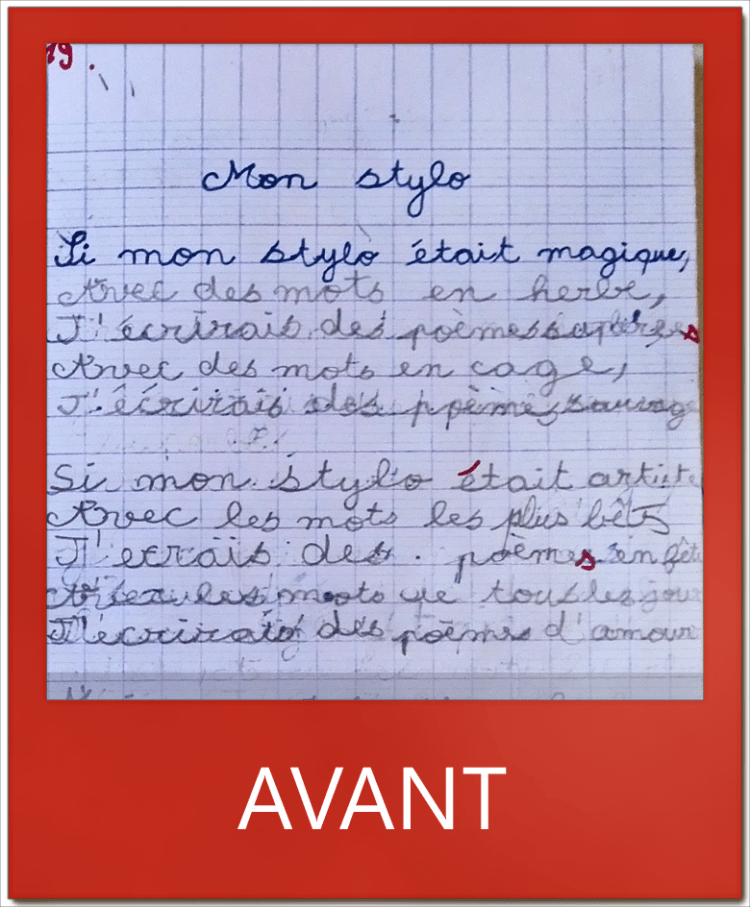 19.
Mon stylo
Si mon stylo était magique,
Avec des mots en herbe,
J'écrirais des poèmes
Avec des mots en cage,
J'écrirais des ppèmes sauvage
Si mon stylo était artiste
Avec les mots les plus bêts
J'ecrais des . poèmes en fête
mots que tous les jour
J'ecrirais des poèmes d'amour
AVANT